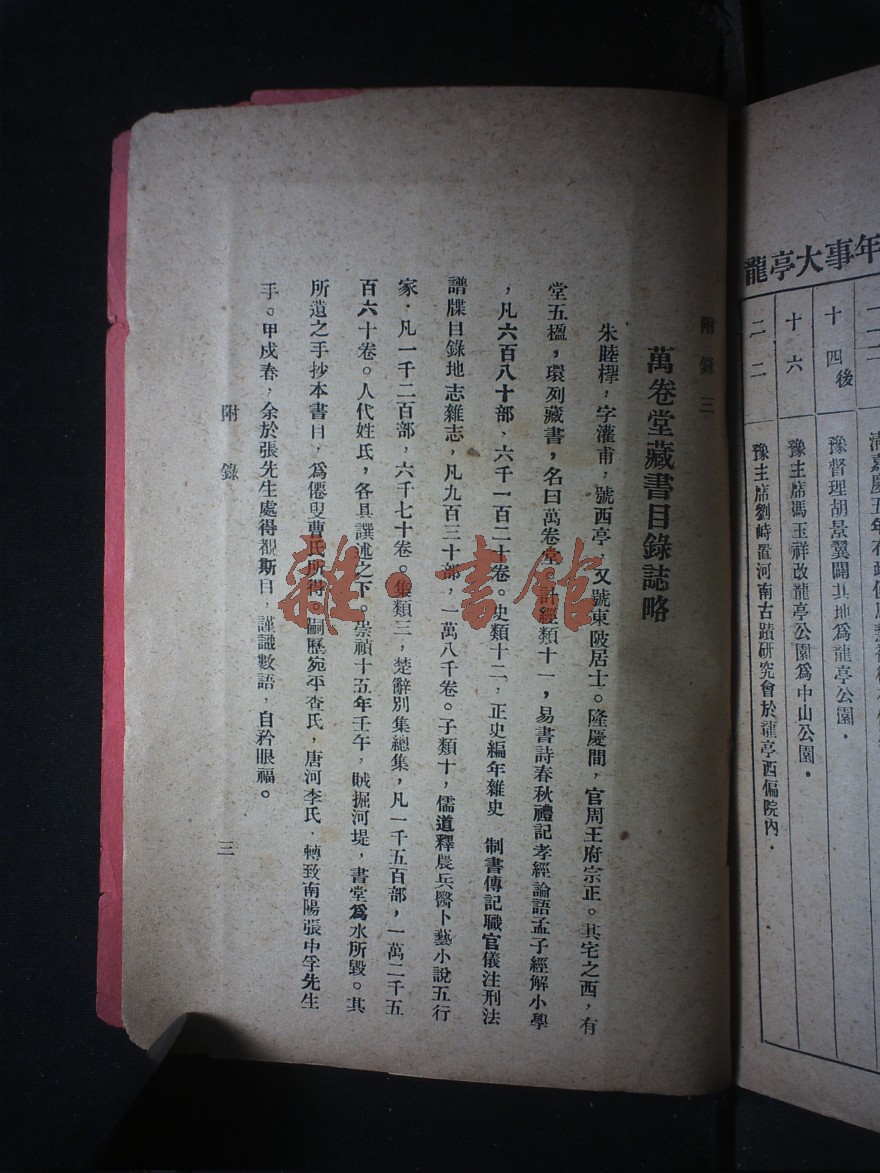 龍亭大事年
十四後
豫督理胡景翼闢其地為龍亭公園．
十六
豫主席馮玉祥改龍亭公園為中山公園．
二二
豫主席劉峙置河南古蹟研究會於龍亭西偏院內．
附錄三
萬卷堂藏書目錄誌略
朱睦㮮，字灌甫，號西亭，又號東陂居士。隆慶間，官周王府宗正。其宅之西，有
堂五楹，環列藏書，名曰萬卷堂，計經類十一，易書詩春秋禮記孝經論語孟子經解小學
，凡六百八十部，六千一百二十卷。史類十二，正史編年雜史　制書傳記職官儀注刑法
譜牒目錄地志雜志，凡九百三十部，一萬八千卷。子類十，儒道釋農兵醫卜藝小說五行
家．凡一千二百部，六千七十卷。集類三，楚辭別集總集，凡一千五百部，一萬二千五
百六十卷。人代姓氏，各具譔述之下。崇禎十五年壬午，賊掘河堤，書堂為水所毀。其
所遺之手抄本書目，為倦叟曹氏所得。嗣歷宛平查氏，唐河李氏．轉致南陽張中孚先生
手。甲戌春，余於張先生處得覩斯目，謹識數語，自矜眼福。
附錄
三
雜·書館